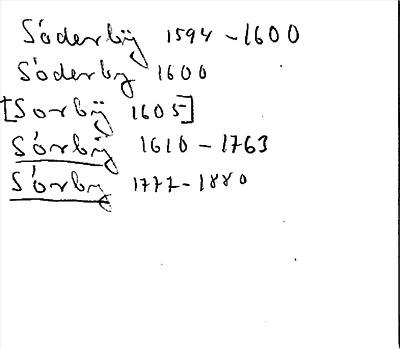 Söderbÿ 1594 - 1600
Söderby 1600
[Sorbÿ 1605]
Sörbÿ 1610 - 1763
Sörby 1777 - 1880